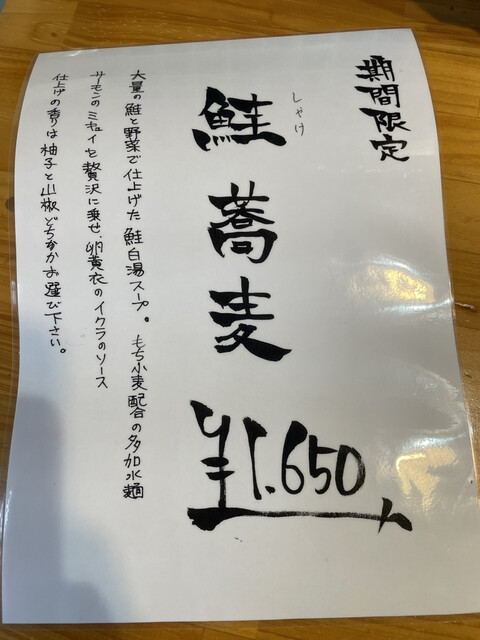 期間限定
しゃけ
鮭蕎麦
¥1.650
大量の鮭と野菜で仕上げた鮭白湯スープ。もち小麦配合の多加水麺
サーモンのミキュイを贅沢に乗せ、卵黄衣のイクラのソース
仕上げの香りは柚子と山椒どちらかお選び下さい。